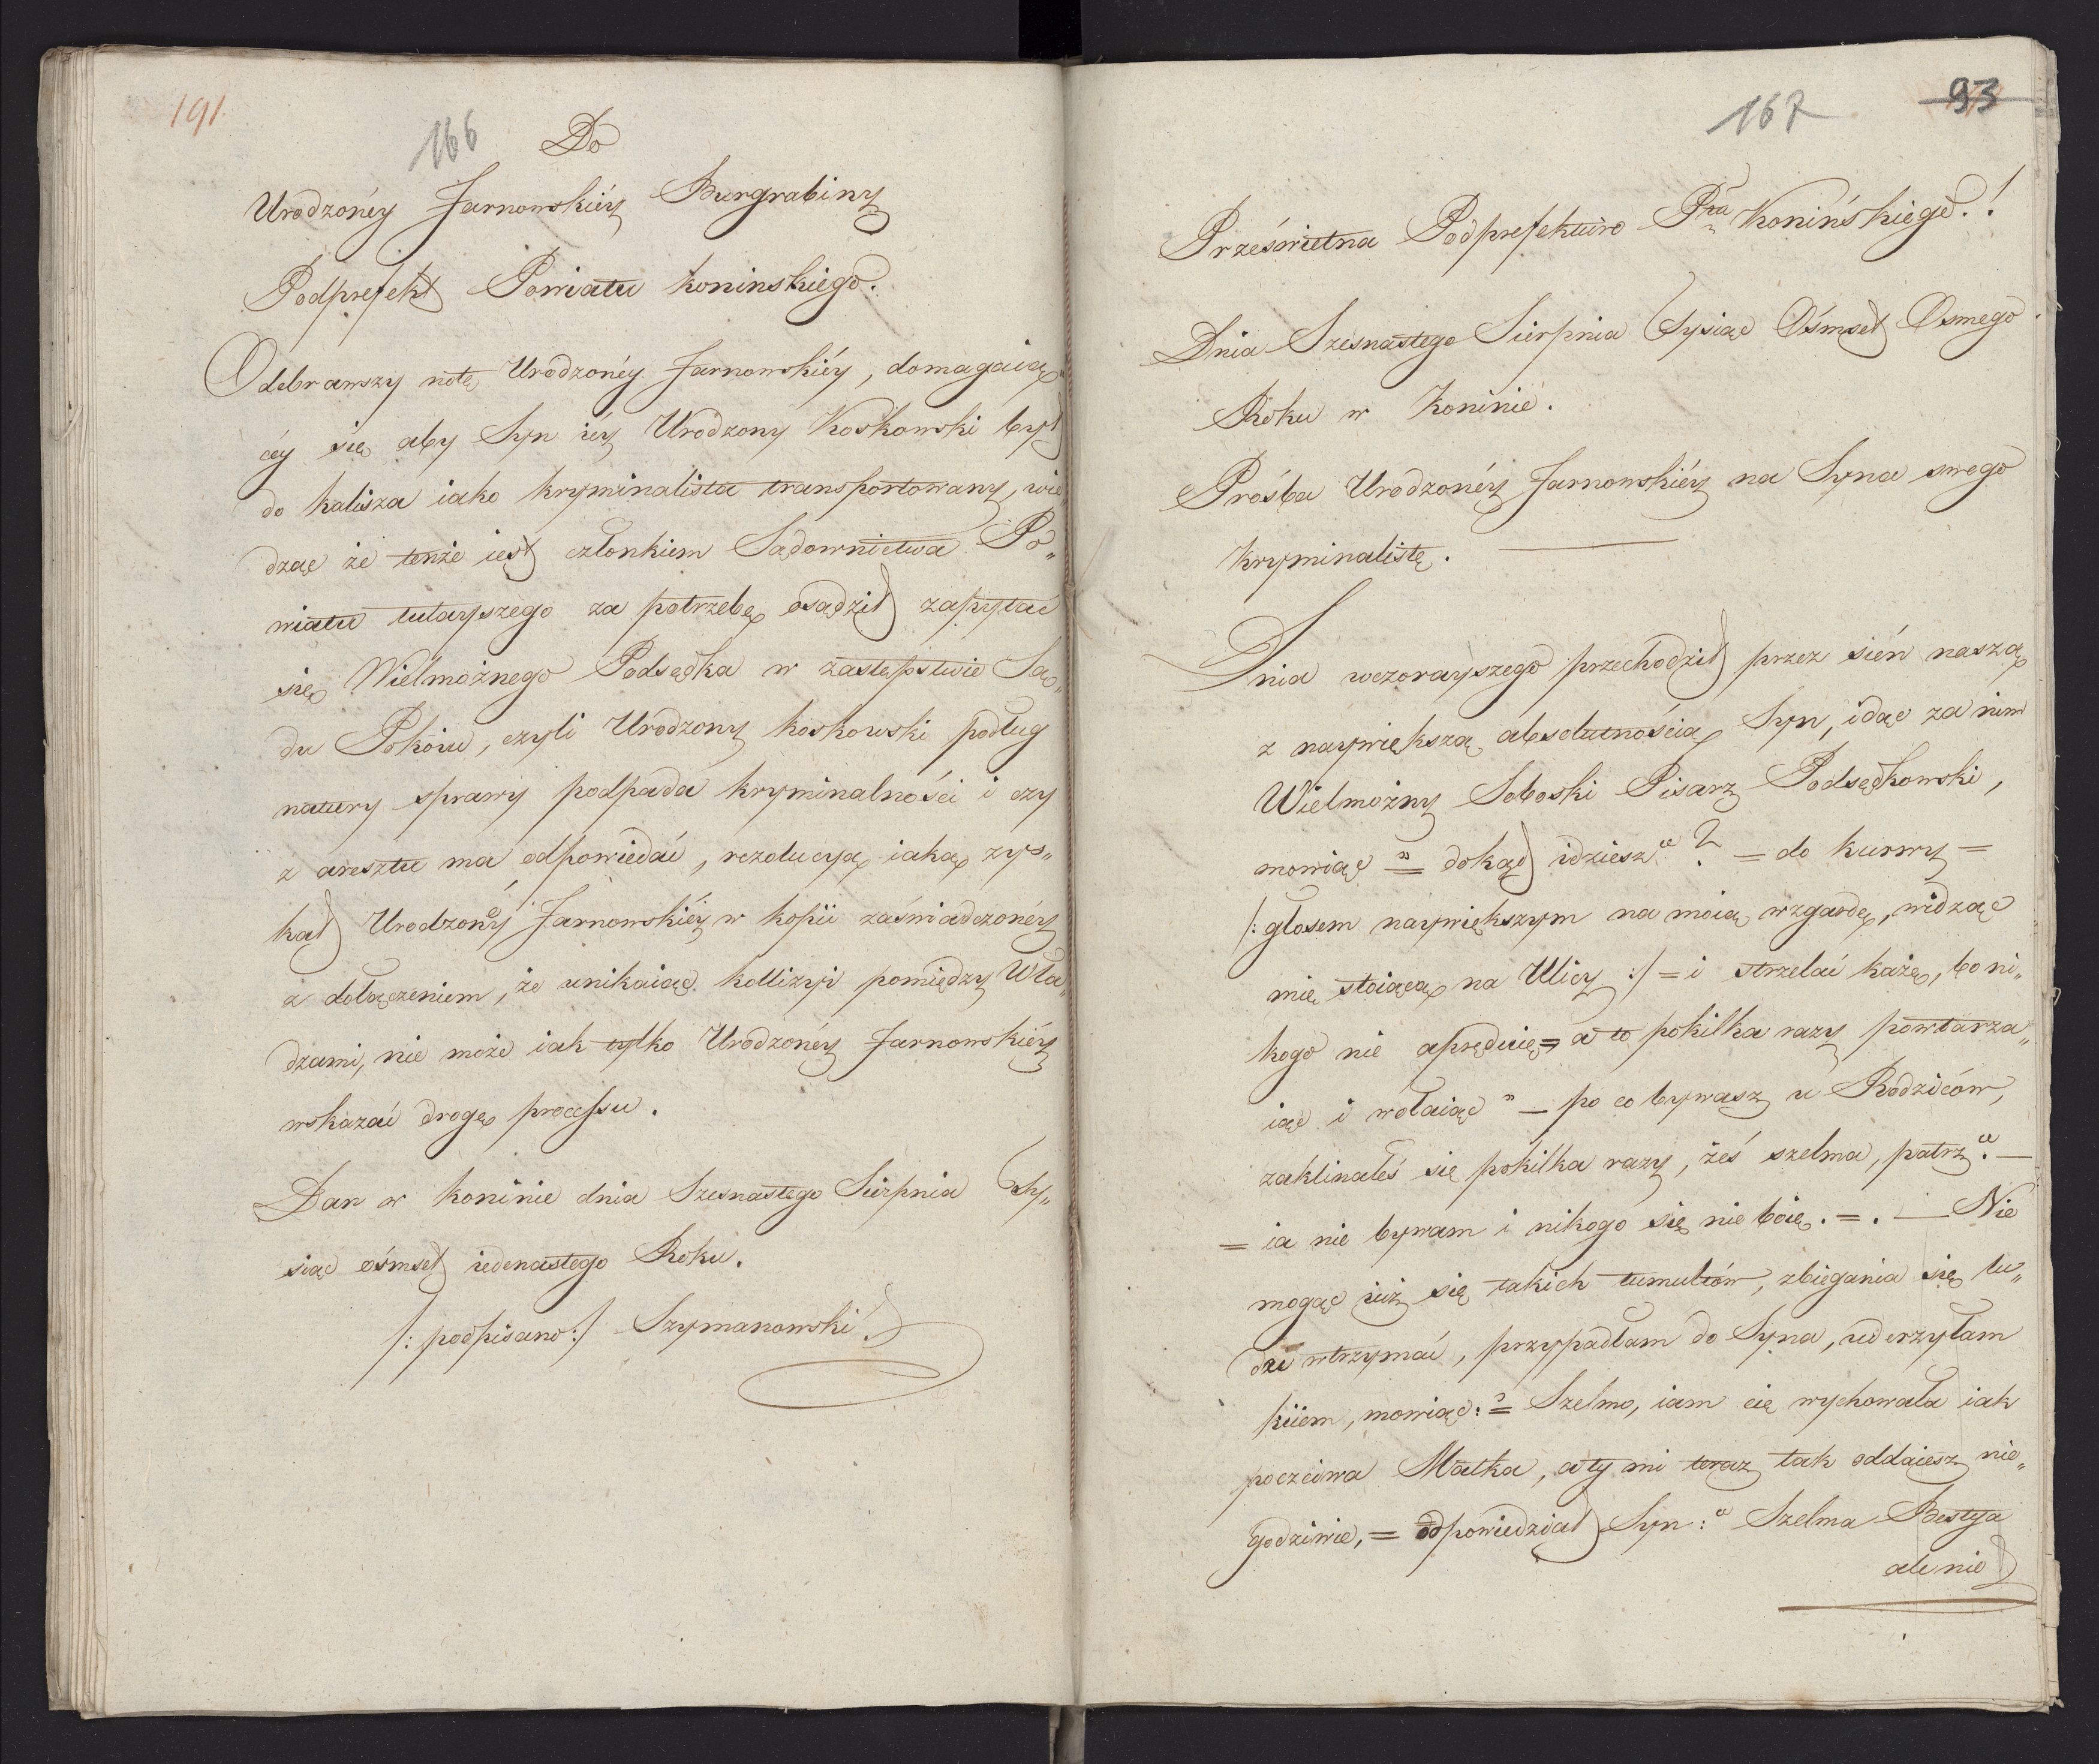 191.
166
Do
Urodzonéy Jarnowskiéy Burgrabiny
Podprefekt Powiatu Koninskiego.
Odebrawszy notę Urodzonéy Jarnowskiéy, domagaią„
céy się aby Syn iey Urodzony Koskowski był
do Kalisza iako Kryminalista transportowany, wie
dząc że tenże iest członkiem Sądownictwa Po„
wiatu tutayszego za potrzebę osądził zapytać
się Wielmożnego Podsędka w zastępstwie Są„
du Pokoiu, czyli Urodzony Koskowski podług
natury sprawy podpada Kryminalności i czy
z aresztu ma odpowiedać, rezolucyą iaką zys„
kał Urodzonéy Jarnowskiéy w kopii zaświadczonéy
z dołączeniem, że unikaiąc kollizyi pomiędzy Wła„
dzami, nie może iak tylko Urodzonéy Jarnowskiéy
wskazać drogę processu.
Dan w Koninie dnia Szesnastego Sierpnia Ty„
siąc ośmset iedenastego Roku.
/: podpisano :/ Szymanowski
167
93
Prześwietna Podprefekturo Pttu Konińskiego.!
Dnia Szesnastego Sierpnia Tysiąc Ośmset Osmego
Roku w Koninie.
Prośba Urodzonéy Jarnowskiéy na Syna swego
Kryminalistę. —
Dnia wczorayszego przechodził przez sień naszą
z naywiększą absolutnością Syn, idąc za nim
Wielmożny Soboski Pisarz Podsędkowski,
mowiąc = „dokąd idziesz“? = do kurwy =
/: głosem naywiększym na moią wzgardę, widząc
mię stoiącą na Ulicy :/ = i strzelać każę, bo ni„
kogo nie = a to pokilka razy powtarza„
iąc i wołaiąc „ — po co bywasz u Rodziców,
zaklinałeś się pokilka razy, żeś szelma, patrz“. —
= ia nie bywam i nikogo się nie boię. = . — Nie
mogąc iuż się takich tumultów, zbiegania się lu„
dzi wtrzymać, przypadłam do Syna, uderzyłam
kiiem, mowiąc: = Szelmo, iam cię wychowała iak
poczciwa Matka, a ty mi teraz tak oddaiesz nie„
godziwie, = odpowiedział Syn: “ Szelma Bestya
ale nie